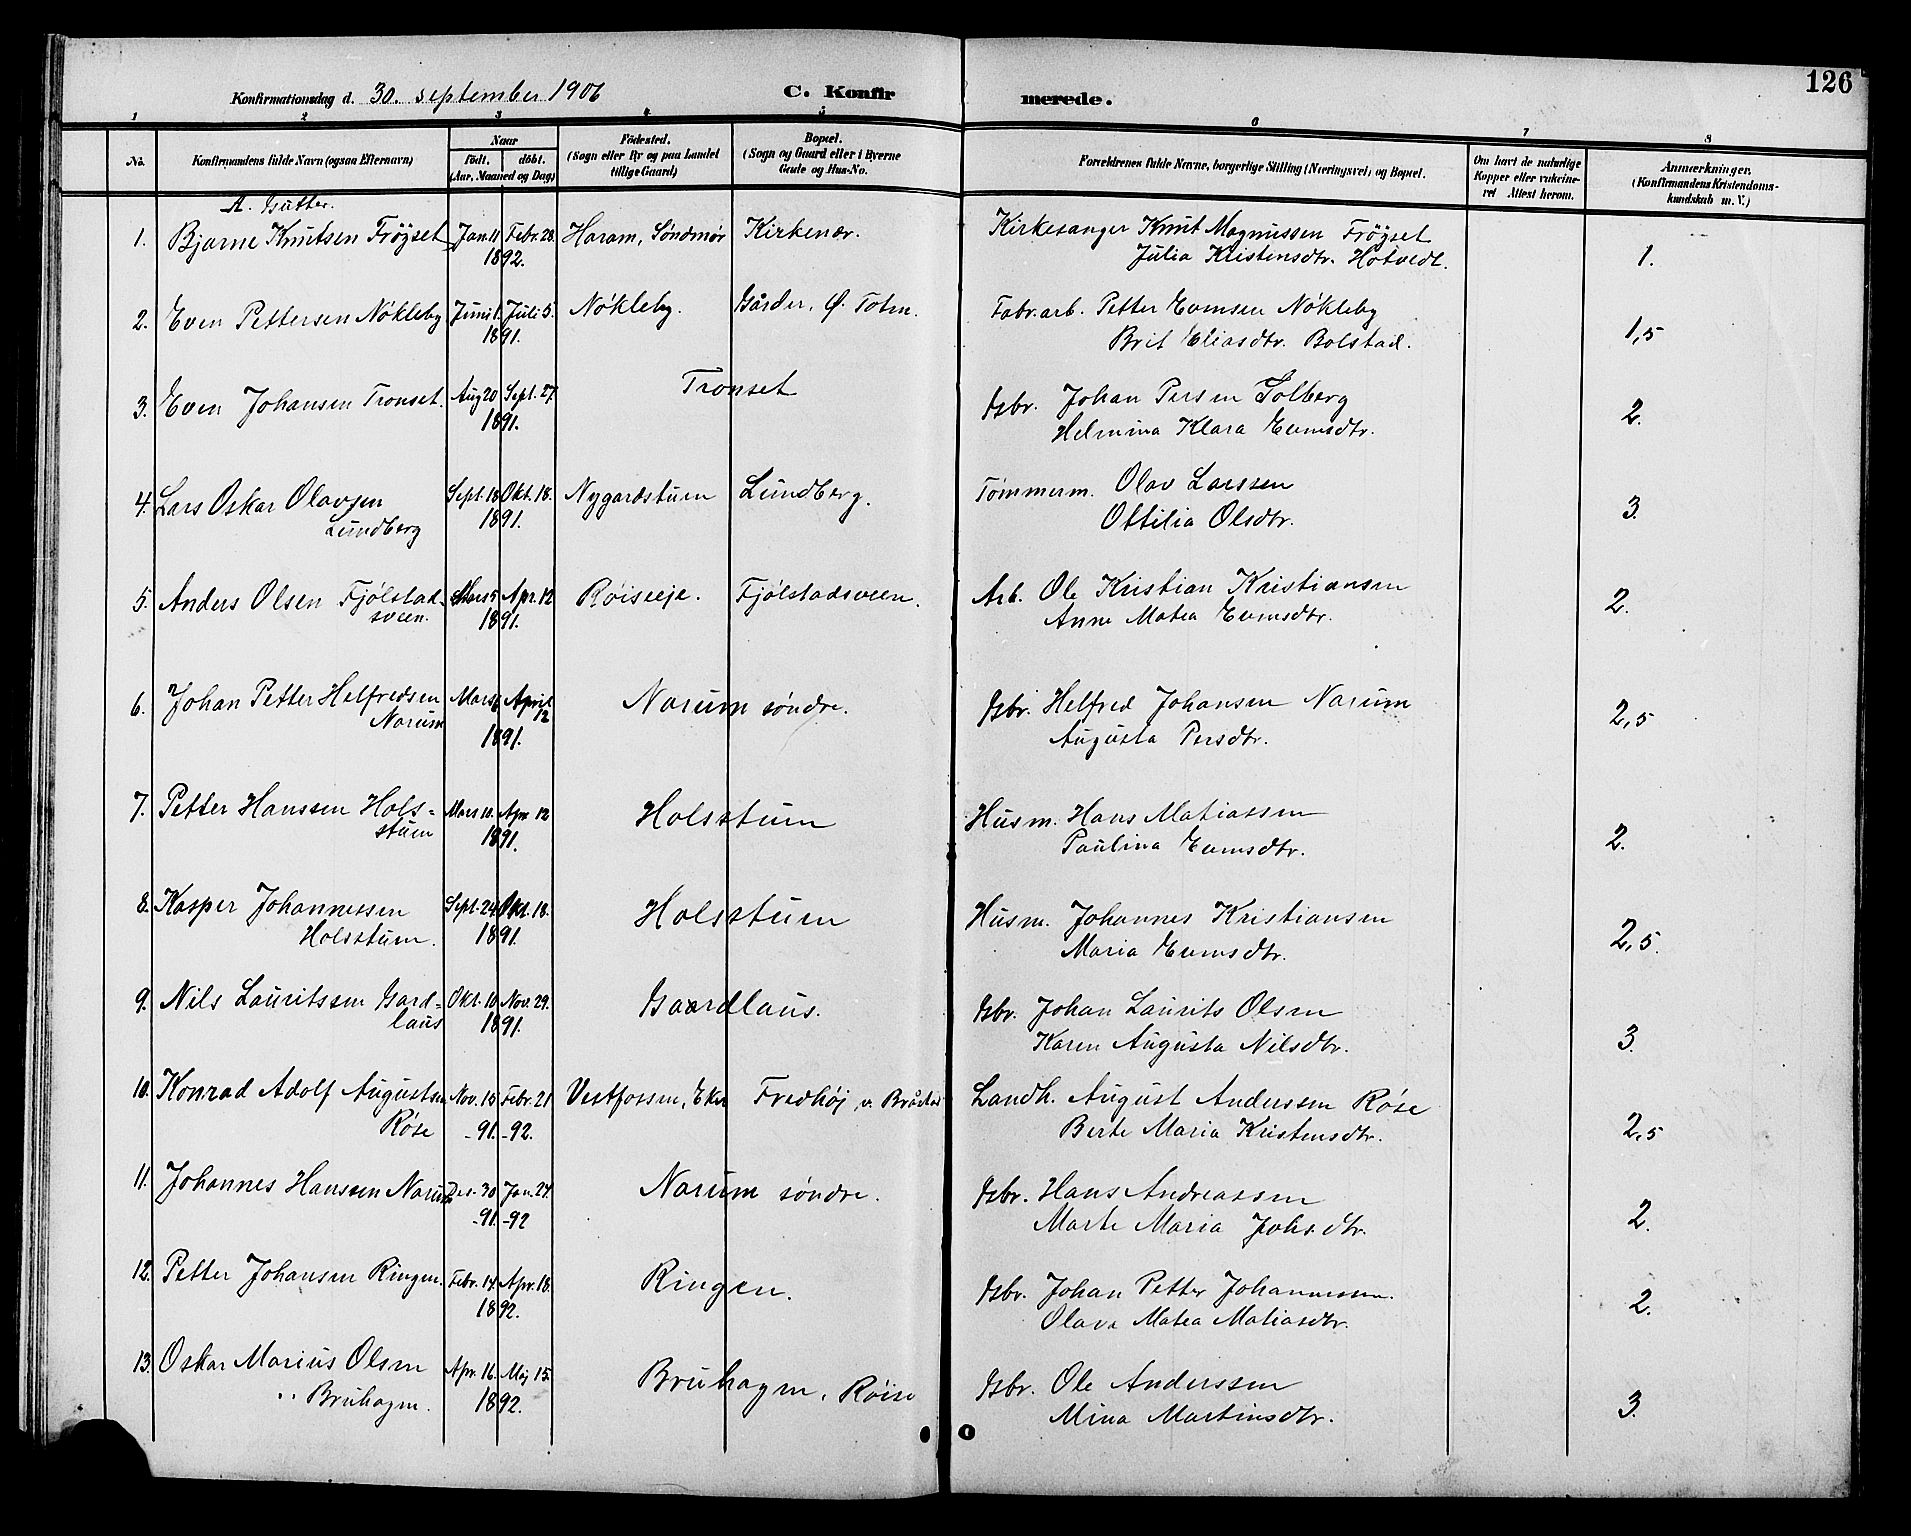 126
Konfirmationsdag d. 30. september 1906
C. Konfirmerede.
1 2 3 4 5 6 7 8
No.
Konfirmandens fulde Navn (ogsaa Efternavn)
Naar
født. døbt.
(Aar, Maaned og Dag)
Fødested.
(Sogn eller By og paa Landet
tillige Gaard)
Bopæl.
(Sogn og Gaard eller i Byerne
Gade og Hus-No.
Forældrenes fulde Navne, borgerlige Stilling (Næringsvei) og Bopæl.
Om havt de naturlige
Kopper eller vakcine-
ret Attest herom.
Anmærkninger.
(Konfirmandens Kristendoms-
kundskab m. V.)
A. Gutter.
1. Bjarne Knutsen Frøyset Jan. 11 Febr. 28. Haram, Søndmør Kirkenær. Kirkesanger Knut Magnussen Frøyset
1892. Julia Kristensdtr. Hotvedt. 1.
2. Even Pettersen Nøkleby Juni 1. Juli 5. Nøkleby. Gårder, Ø. Toten. Fabr.arb. Petter Evensen Nøkleby
1891. Brit Eliasdtr. Bolstad. 1,5
3. Even Johansen Tronset. Aug 20 Sept. 27. Tronset Gbr. Johan Persen Solberg
1891. Helmina Klara Evensdtr. 2.
4. Lars Oskar Olavsen Sept. 18 Okt. 18. Nygardstuen Lundberg. Tømmerm. Olav Larssen
Lundberg 1891. Ottilia Olsdtr. 3.
5. Anders Olsen Fjølstad- Mars 5 Apr. 12 Røiseeje. Fjølstadsveen. Arb. Ole Kristian Kristiansen
sveen. 1891. Anne Matea Evensdtr. 2.
6. Johan Petter Helfredsen Mars 6 April 12 Narum søndre. Gbr. Helfred Johansen Narum
Narum 1891. Augusta Persdtr. 2,5
7. Petter Hanssen Hols- Mars 10. Apr. 12 Holsstuen Husm. Hans Matiassen
stuen 1891. Paulina Evensdtr. 2.
8. Kasper Johannessen Sept. 24 Okt. 18. Holsstuen Husm. Johannes Kristiansen
Holsstuen. 1891. Maria Evensdtr. 2,5.
9. Nils Lauritssen Gard- Okt. 10 Nov. 29. Gaardlaus. Gbr. Johan Laurits Olsen
laus 1891. Karen Augusta Nilsdtr. 3.
10. Konrad Adolf Augustsen Nov. 15 Febr. 21 Vestfossen, Eker Fredhøj, v. Landh. August Anderssen Røse
Røse -91. -92. Berte Maria Kristensdtr. 2,5
11. Johannes Hanssen Narum Des. 30 Jan. 24. Narum søndre. Gbr. Hans Andreassen
-91. -92 Marte Maria Johs.dtr. 2.
12. Petter Johansen Ringen. Febr. 14. Apr. 18. Ringen. Gbr. Johan Petter Johannessen.
1892. Olava Matea Matiasdtr. 2.
13. Oskar Marius Olsen Apr. 16. Maj 15. Bruhagen, Røise Gbr. Ole Anderssen
Bruhagen. 1892. Mina Martinsdtr. 3.